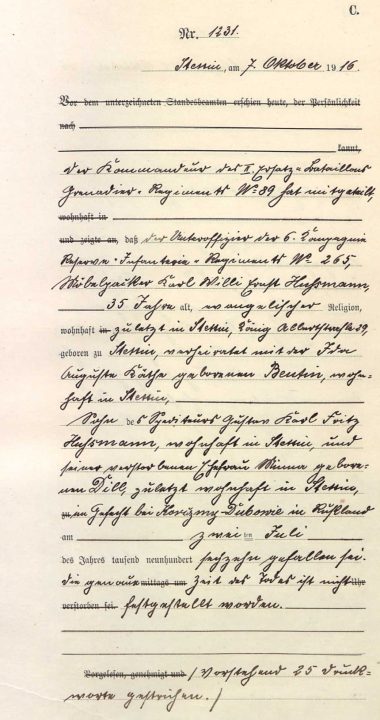 C.
Nr. 1231.
Stettin, am 7. Oktober 1916.
Vor dem unterzeichneten Standesbeamten erschien heute, der Persönlichkeit
nach
kannt,
der Kommandeur des II. Ersatz-Bataillons
Grenadier-Regiments No 89 hat mitgeteilt,
wohnhaft in
und zeigte an, daß der Unteroffizier der 6. Kompagnie
Reserve-Infanterie-Regiments No 265,
Möbelpacker Karl Willi Ernst Huhsmann,
35 Jahre alt, evangelischer Religion,
wohnhaft in zuletzt in Stettin, König Albertstraße 39,
geboren zu Stettin, verheiratet mit der Ida
Auguste Käthe geborenen Bentin, wohn-
haft in Stettin,
Sohn des Spediteurs Gustav Karl Fritz
Huhsmann, wohnhaft in Stettin, und
seiner verstorbenen Ehefrau Minna gebore-
nen Dill, zuletzt wohnhaft in Stettin,
zu im Gefecht bei Dubowie in Rußland
am zwei ten Juli
des Jahres tausend neunhundert sechzehn gefallen sei.
die genaue mittags um Zeit des Todes ist nicht Uhr
verstorben sei. festgestellt worden.
Vorgelesen, genehmigt und / Vorstehend 25 Druck-
worte gestrichen. /